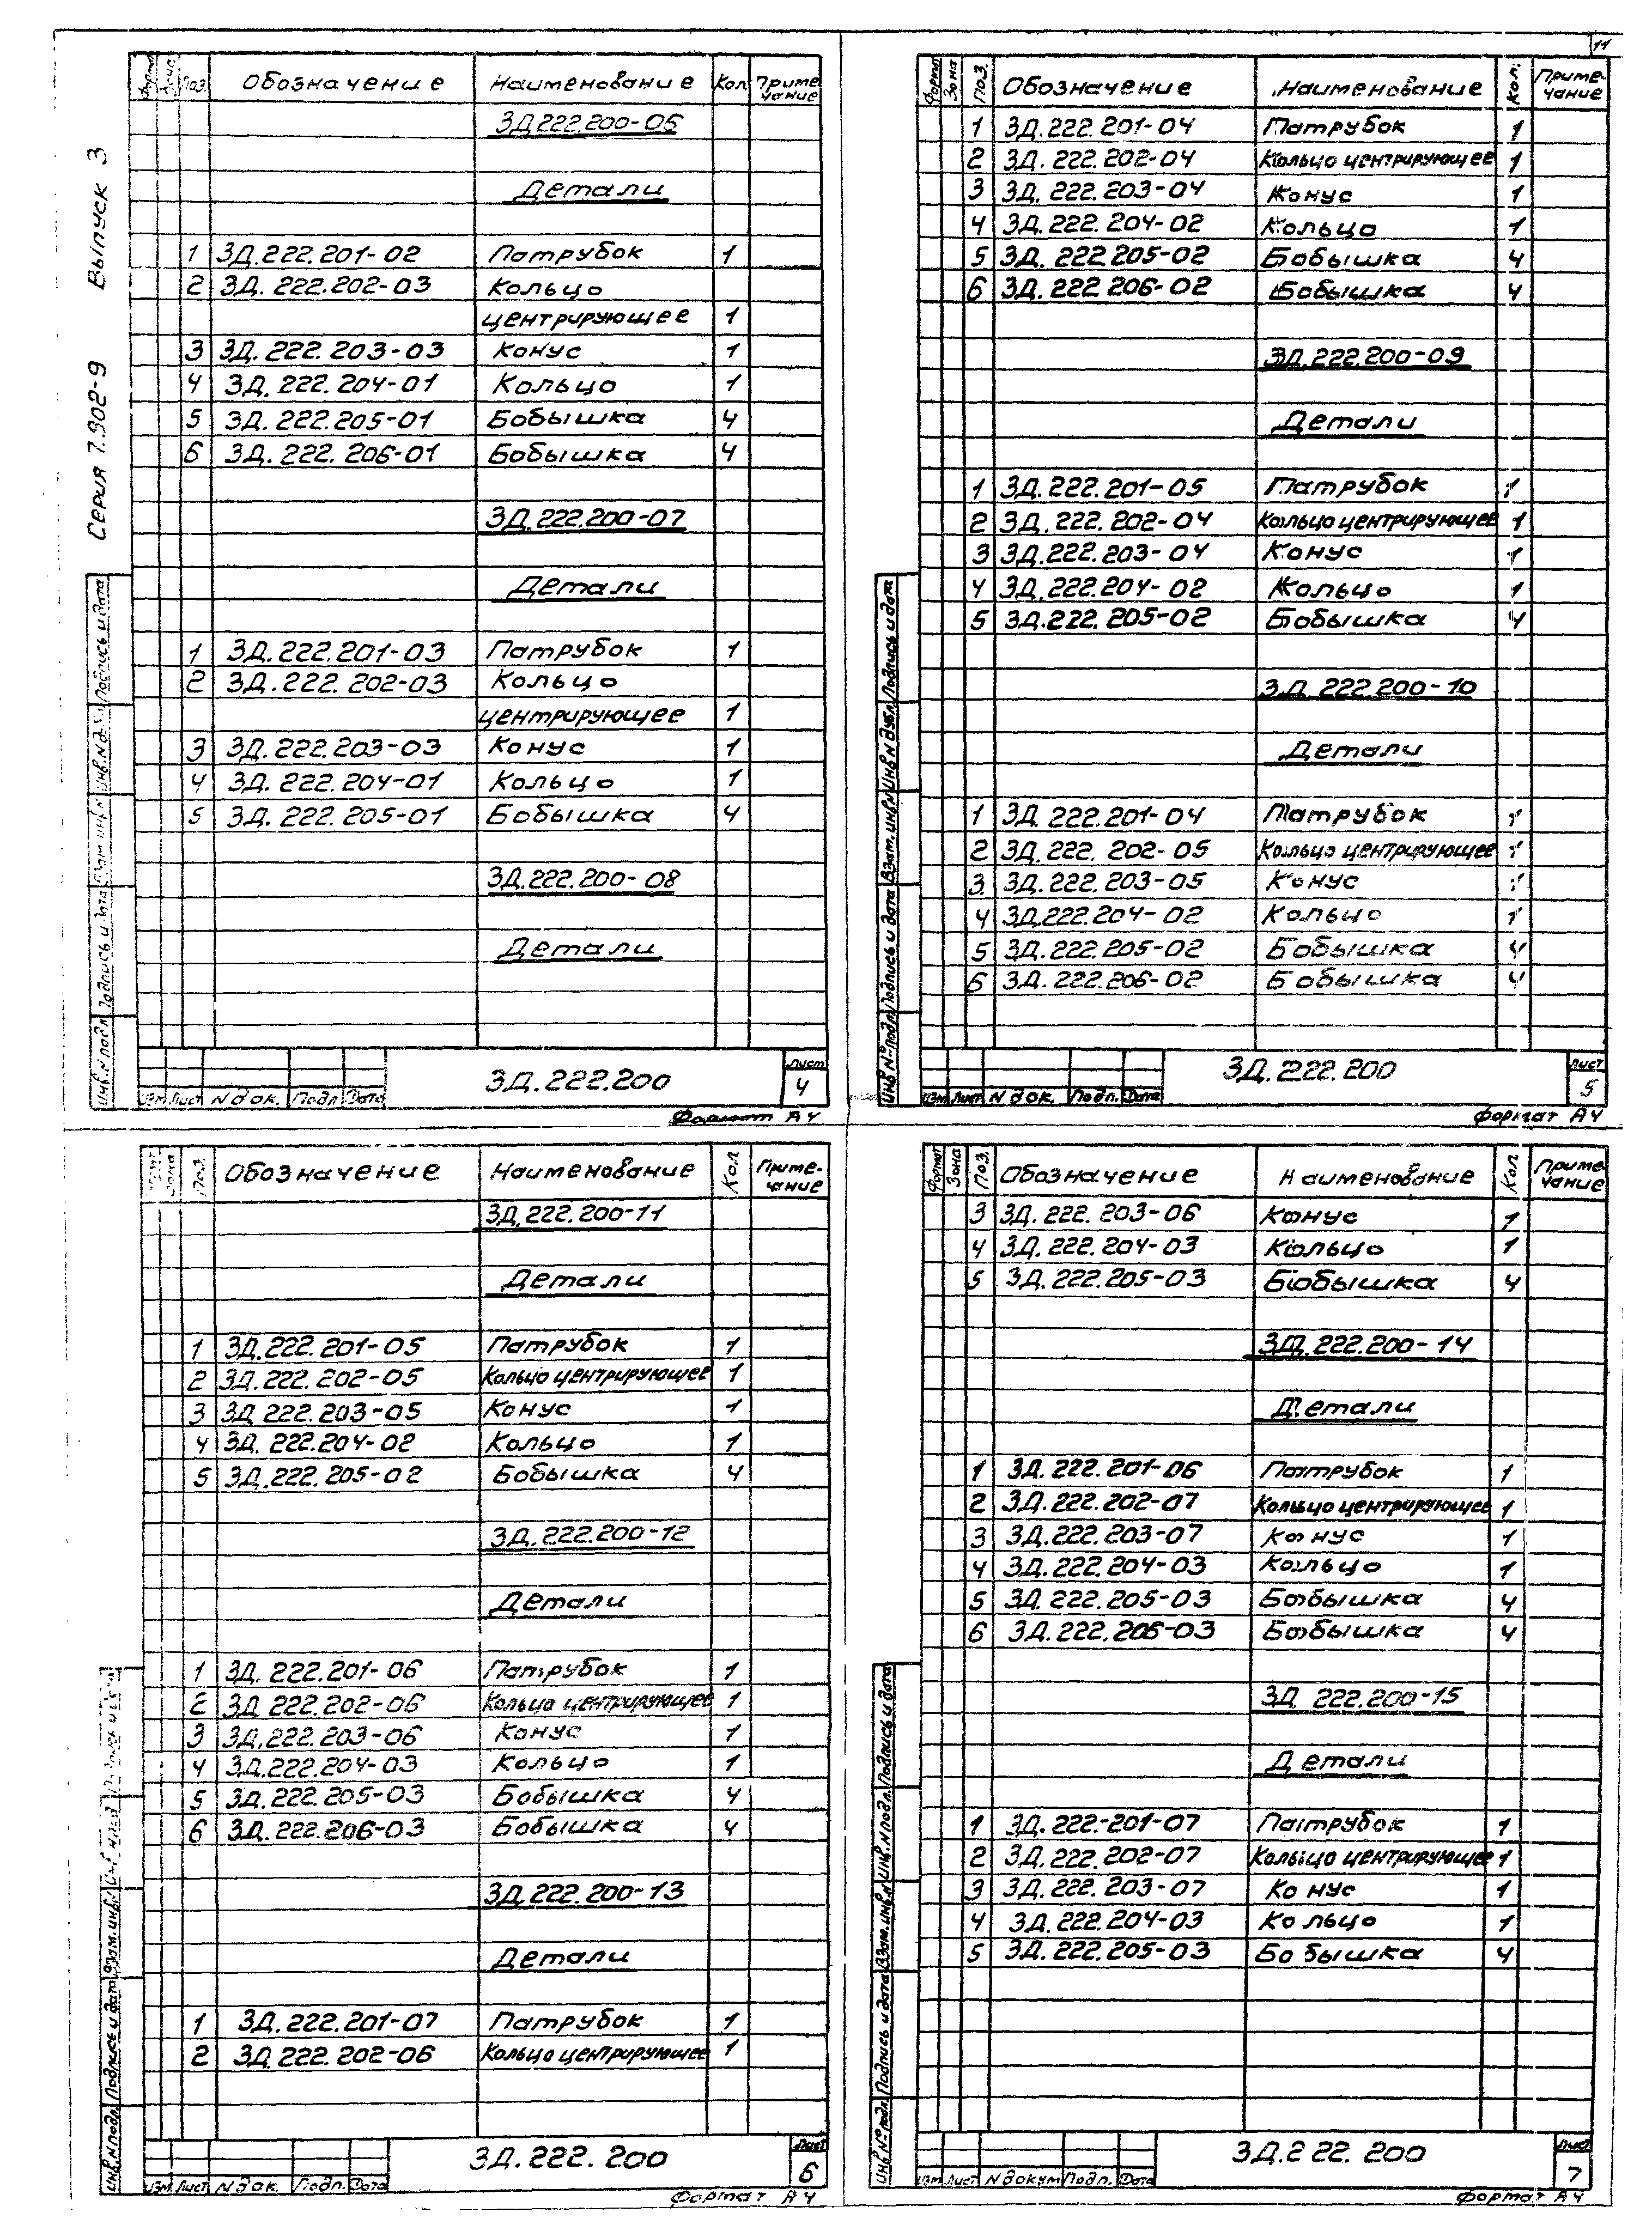 11
Серия 7.902-9 Выпуск 3
Поз. Обозначение Наименование Кол Примечание
ЗД.222.200-06
Детали
1 ЗД.222.201-02 Патрубок 1
2 ЗД.222.202-03 Кольцо
центрирующее 1
3 ЗД.222.203-03 Конус 1
4 ЗД.222.204-01 Кольцо 1
5 ЗД.222.205-01 Бобышка 4
6 ЗД.222.206-01 Бобышка 4
ЗД.222.200-07
Детали
1 ЗД.222.201-03 Патрубок 1
2 ЗД.222.202-03 Кольцо
центрирующее 1
3 ЗД.222.203-03 Конус 1
4 ЗД.222.204-01 Кольцо 1
5 ЗД.222.205-01 Бобышка 4
ЗД.222.200-08
Детали
Инв.N подл. Подпись и дата Взам.инв.N Инв.N дубл. Подпись и дата
Изм Лист N док. Подп. Дата
ЗД.222.200
Лист
4
Формат А4
Формат Зона Поз. Обозначение Наименование Кол. Примечание
1 ЗД.222.201-04 Патрубок 1
2 ЗД.222.202-04 Кольцо центрирующее 1
3 ЗД.222.203-04 Конус 1
4 ЗД.222.204-02 Кольцо 1
5 ЗД.222.205-02 Бобышка 4
6 ЗД.222.206-02 Бобышка 4
ЗД.222.200-09
Детали
1 ЗД.222.201-05 Патрубок 1
2 ЗД.222.202-04 Кольцо центрирующее 1
3 ЗД.222.203-04 Конус 1
4 ЗД.222.204-02 Кольцо 1
5 ЗД.222.205-02 Бобышка 4
ЗД.222.200-10
Детали
1 ЗД.222.201-04 Патрубок 1
2 ЗД.222.202-05 Кольцо центрирующее 1
3 ЗД.222.203-05 Конус 1
4 ЗД.222.204-02 Кольцо 1
5 ЗД.222.205-02 Бобышка 4
6 ЗД.222.206-02 Бобышка 4
Инв.№подл. Подпись и дата Взам.инв.N Инв.N дубл. Подпись и дата
Изм Лист N док. Подп. Дата
ЗД.222.200
Лист
5
Формат А4
Зона Поз. Обозначение Наименование Кол Примечание
ЗД.222.200-11
Детали
1 ЗД.222.201-05 Патрубок 1
2 ЗД.222.202-05 Кольцо центрирующее 1
3 ЗД.222.203-05 Конус 1
4 ЗД.222.204-02 Кольцо 1
5 ЗД.222.205-02 Бобышка 4
ЗД.222.200-12
Детали
1 ЗД.222.201-06 Патрубок 1
2 ЗД.222.202-06 Кольцо центрирующее 1
3 ЗД.222.203-06 Конус 1
4 ЗД.222.204-03 Кольцо 1
5 ЗД.222.205-03 Бобышка 4
6 ЗД.222.206-03 Бобышка 4
ЗД.222.200-13
Детали
1 ЗД.222.201-07 Патрубок 1
2 ЗД.222.202-06 Кольцо центрирующее 1
Инв.N подл. Подпись и дата Взам.инв.N
Изм Лист N док. Подп. Дата
ЗД.222.200
Лист
6
Формат А4
Формат Зона Поз. Обозначение Наименование Кол Примечание
3 ЗД.222.203-06 Конус 1
4 ЗД.222.204-03 Кольцо 1
5 ЗД.222.205-03 Бобышка 4
ЗД.222.200-14
Детали
1 ЗД.222.201-06 Патрубок 1
2 ЗД.222.202-07 Кольцо центрирующее 1
3 ЗД.222.203-07 Конус 1
4 ЗД.222.204-03 Кольцо 1
5 ЗД.222.205-03 Бобышка 4
6 ЗД.222.206-03 Бобышка 4
ЗД.222.200-15
Детали
1 ЗД.222-201-07 Патрубок 1
2 ЗД.222.202-07 Кольцо центрирующее 1
3 ЗД.222.203-07 Конус 1
4 ЗД.222.204-03 Кольцо 1
5 ЗД.222.205-03 Бобышка 4
Инв.№подл. Подпись и дата Взам.инв.N Инв.N подл. Подпись и дата
Изм Лист N докум Подп. Дата
ЗД.222.200
Лист
7
Формат А4